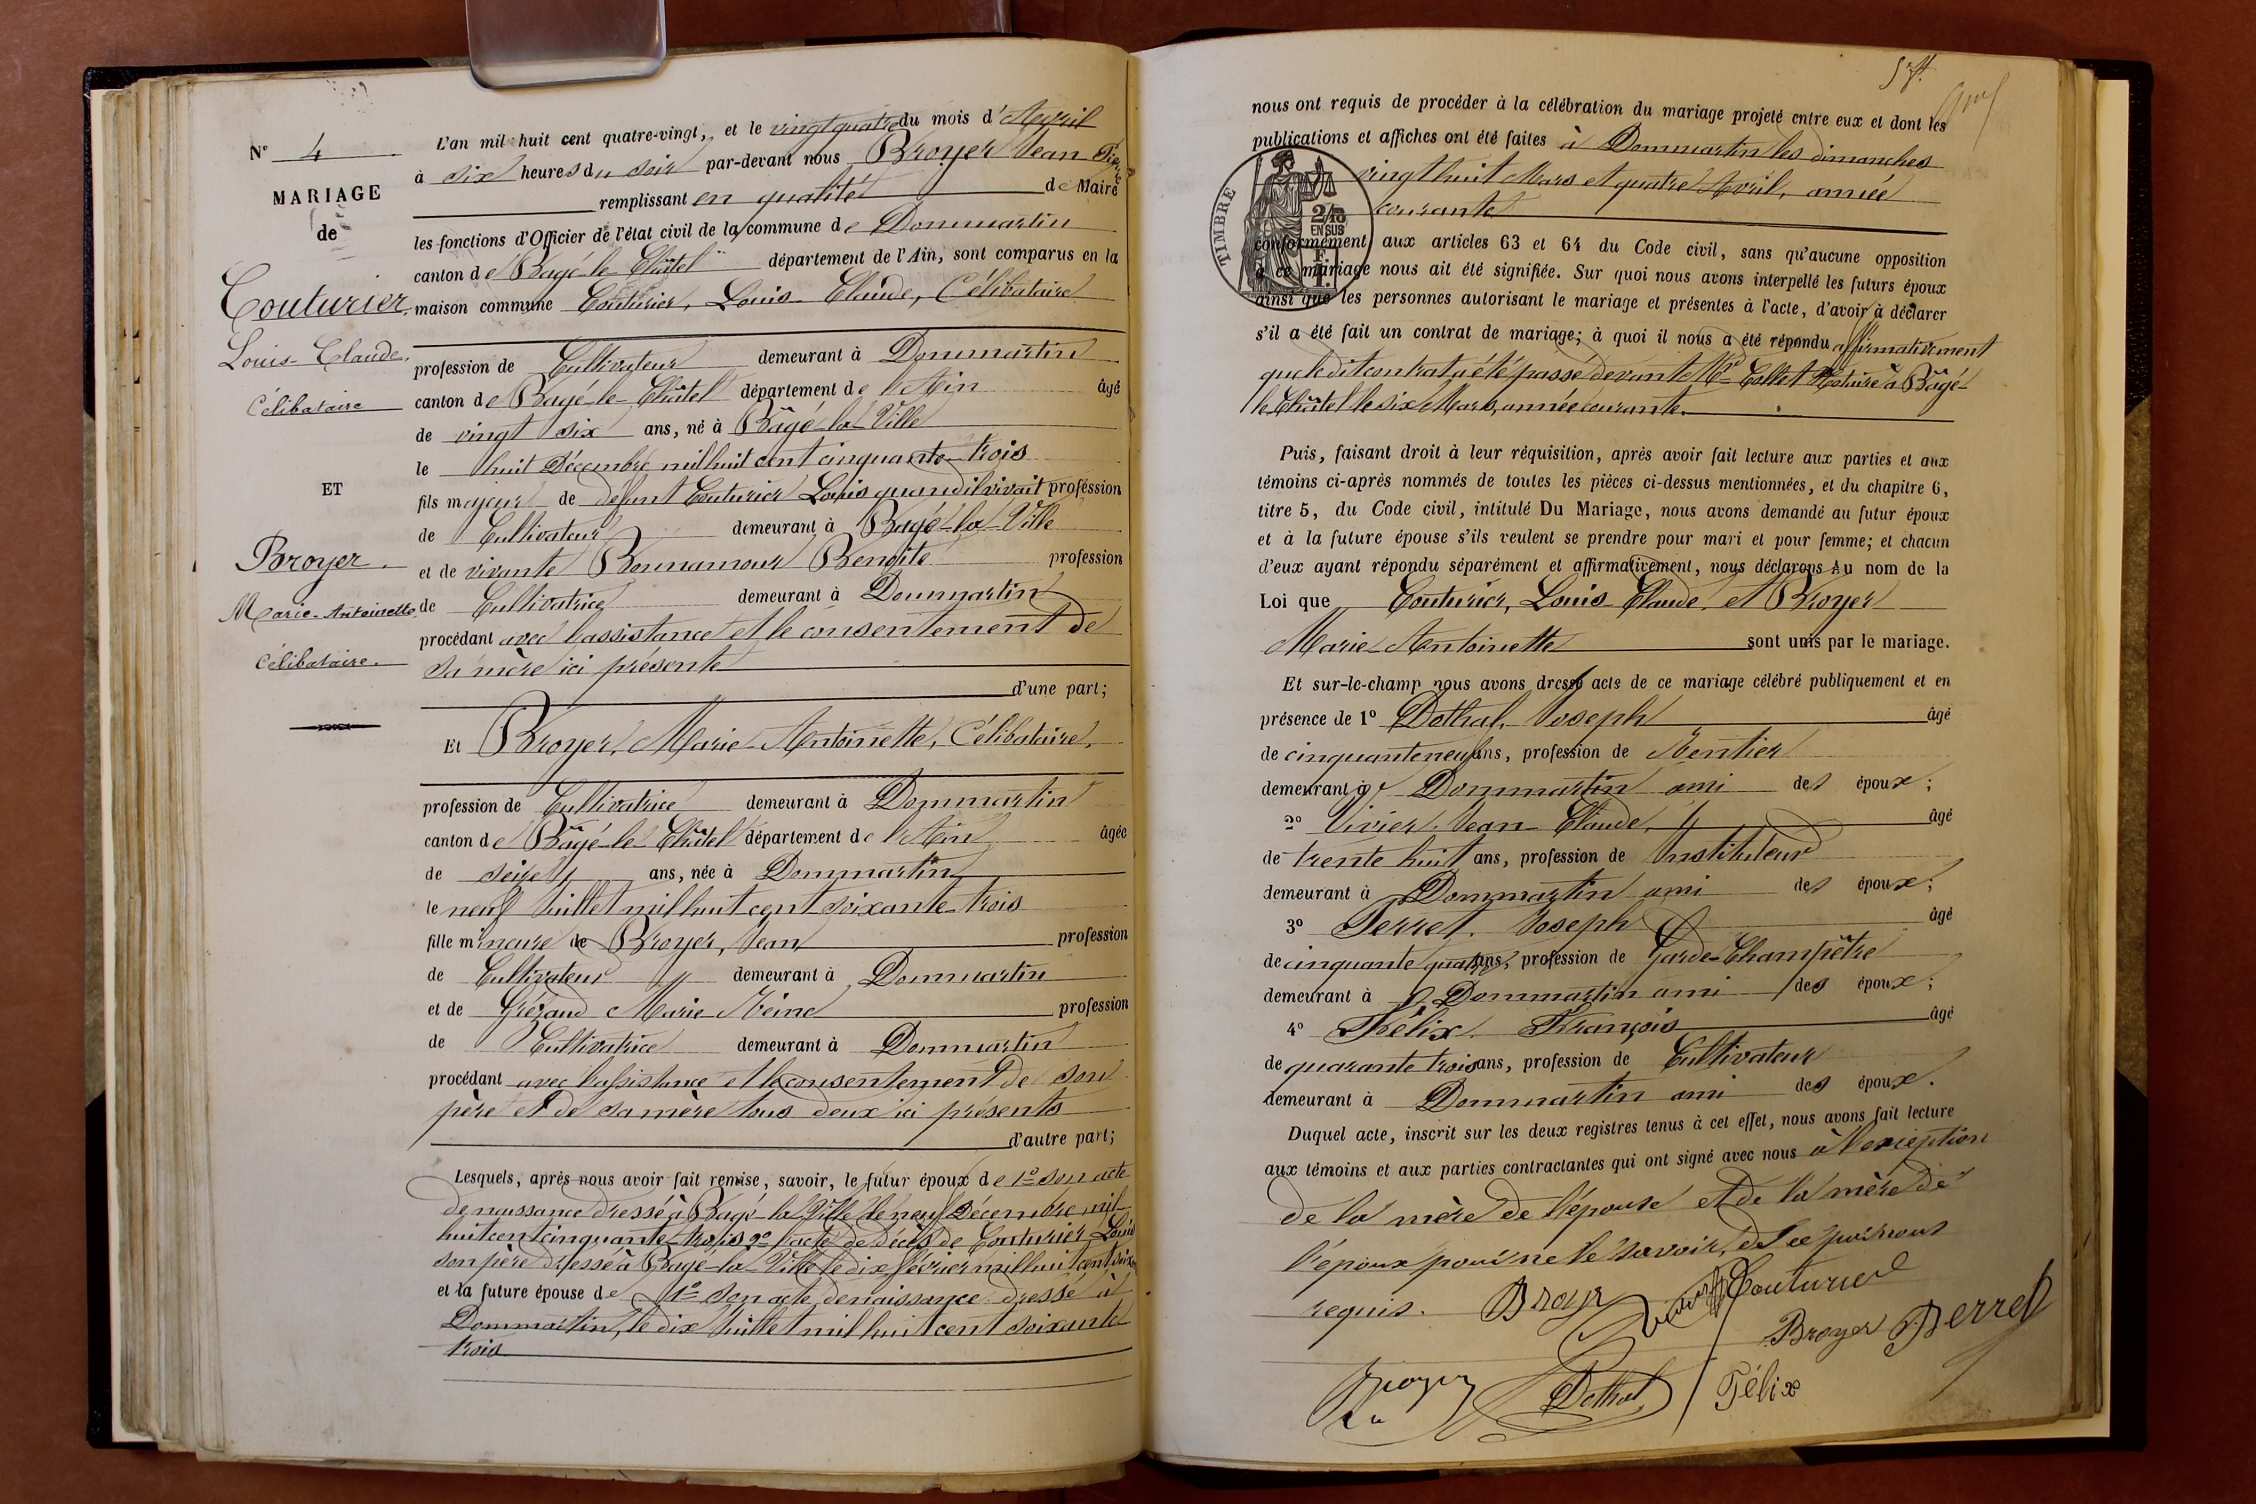 N° 4
MARIAGE
de
Couturier
Louis-Claude.
Célibataire
ET
Broyer.
Marie-Antoinette
Célibataire.
L'an mil huit cent quatre-vingt, et le vingt quatre du mois d'Avril
à six heures du soir par-devant nous Broyer Jean
remplissant en qualité de Maire
les fonctions d'Officier de l'état civil de la commune de Dommartin
canton de Bâgé-le-Châtel département de l'Ain, sont comparus en la
maison commune Couturier, Louis-Claude, Célibataire
profession de Cultivateur demeurant à Dommartin
canton de Bâgé-le-Châtel département de l'Ain âgé
de vingt six ans, né à Bâgé-la-Ville
le huit Décembre mil huit cent cinquante-trois
fils majeur de défunt Couturier Louis quand il vivait profession
de Cultivateur demeurant à Bagé-la-Ville
et de vivante Bonnamour Benoite profession
de Cultivatrice demeurant à Dommartin
procédant avec l'assistance et le consentement de
sa mère ici présente
d'une part;
Et Broyer, Marie-Antoinette, Célibataire,
profession de Cultivatrice demeurant à Dommartin
canton de Bâgé-le-Châtel département de l'Ain âgée
de seize ans, née à Dommartin
le neuf Juillet mil huit cent soixante-trois
fille mineure de Broyer, Jean profession
de Cultivateur demeurant à Dommartin
et de Grézaud Marie Reine profession
de Cultivatrice demeurant à Dommartin
procédant avec l'assistance et le consentement de son
père et de sa mère tous deux ici présents
d'autre part;
Lesquels, après nous avoir fait remise, savoir, le futur époux de 1° son acte
de naissance dressé à Bagé-la-Ville le neuf Décembre mil
huit cent cinquante-trois 2° l'acte de décès de Couturier Louis
son père dressé à Bagé-la-Ville le dix février mil huit cent
et la future épouse de 1° son acte de naissance dressé à
Dommartin, le dix Juillet mil huit cent soixante
trois
nous ont requis de procéder à la célébration du mariage projeté entre eux et dont les
publications et affiches ont été faites à Dommartin les dimanches
vingt huit Mars et quatre Avril, année
courante
TIMBRE
2/10
EN SUS
conformément aux articles 63 et 64 du Code civil, sans qu'aucune opposition
à ce mariage nous ait été signifiée. Sur quoi nous avons interpellé les futurs époux
ainsi que les personnes autorisant le mariage et présentes à l'acte, d'avoir à déclarer
s'il a été fait un contrat de mariage; à quoi il nous a été répondu affirmativement
que le dit contrat a été passé devant Me Collet Notaire à Bâgé-
le-Châtel le six Mars, année courante.
Puis, faisant droit à leur réquisition, après avoir fait lecture aux parties et aux
témoins ci-après nommés de toutes les pièces ci-dessus mentionnées, et du chapitre 6,
titre 5, du Code civil, intitulé Du Mariage, nous avons demandé au futur époux
et à la future épouse s'ils veulent se prendre pour mari et pour femme; et chacun
d'eux ayant répondu séparément et affirmativement, nous déclarons Au nom de la
Loi que Couturier, Louis-Claude, et Broyer
Marie-Antoinette sont unis par le mariage.
Et sur-le-champ nous avons dressé acte de ce mariage célébré publiquement et en
présence de 1° Dothal, Joseph âgé
de cinquante neuf ans, profession de Rentier
demeurant à Dommartin ami des époux;
2° Vivier, Jean Claude, âgé
de trente huit ans, profession de Instituteur
demeurant à Dommartin ami des époux;
3° Perret, Joseph âgé
de cinquante quatre ans, profession de Garde-Champêtre
demeurant à Dommartin ami des époux;
4° Félix François âgé
de quarante trois ans, profession de Cultivateur
demeurant à Dommartin ami des époux.
Duquel acte, inscrit sur les deux registres tenus à cet effet, nous avons fait lecture
aux témoins et aux parties contractantes qui ont signé avec nous à l'exception
de la mère de l'épouse et de la mère de
l'époux pour ne le savoir, de ce par nous
requis. Broyer Vivier Couturier
Broyer Perret
Dothal Félix